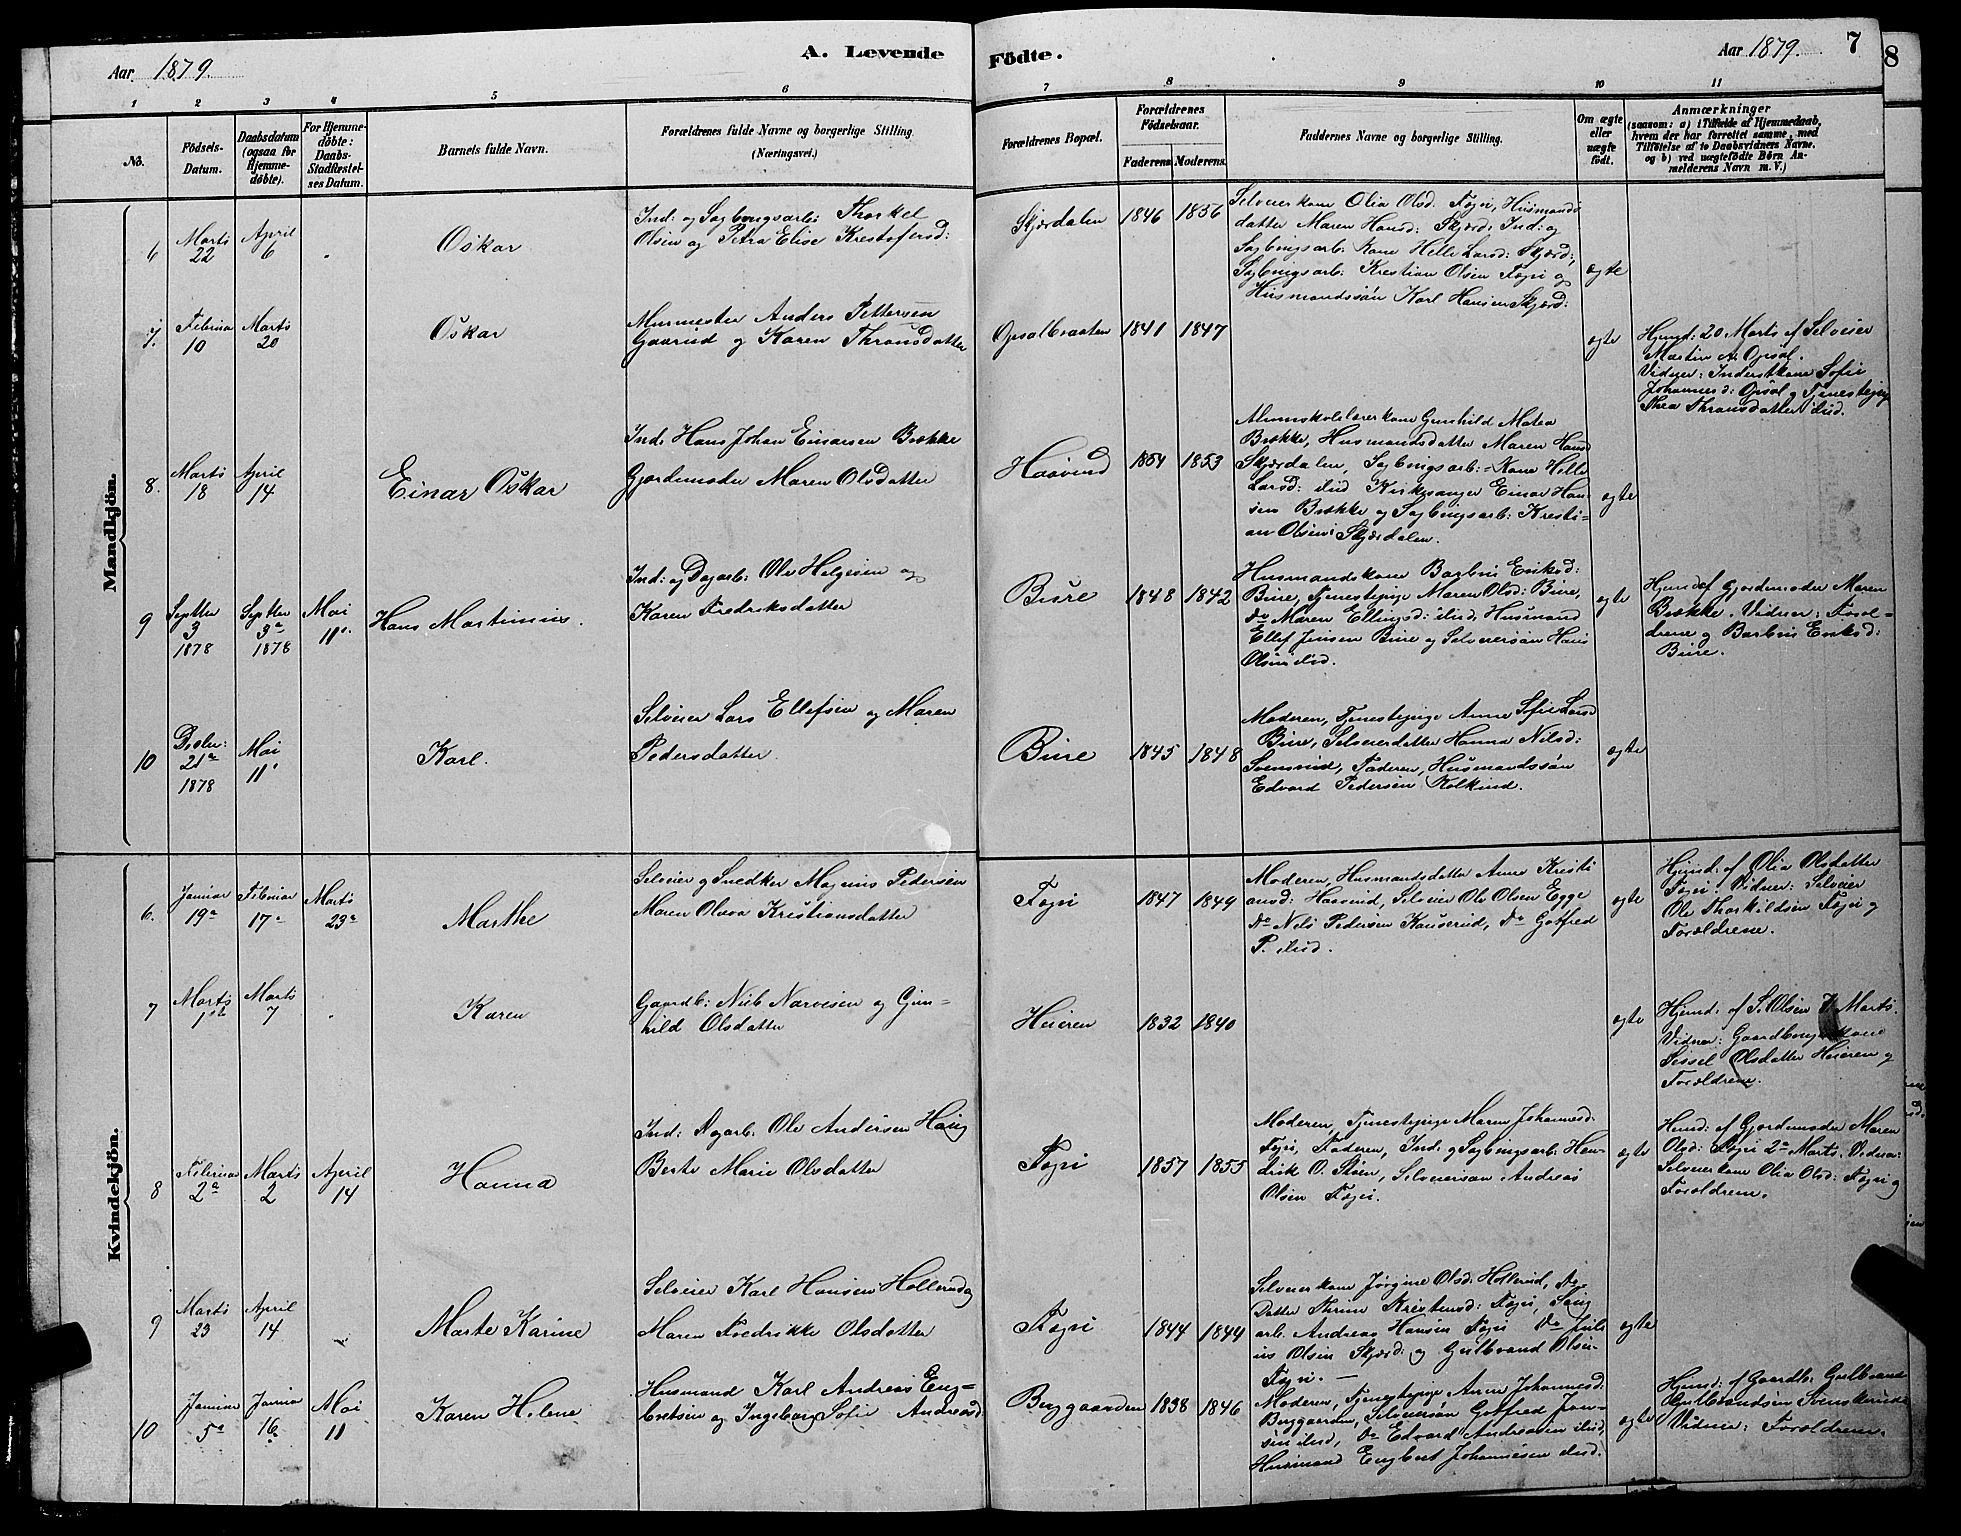 Aar 1879.
A. Levende
Födte.
Aar 1879.
7
8
1
2
3
4
5
6
7
8
9
10
11
No.
Födsels-
Datum.
Daabsdatum
(ogsaa for
Hjemme-
döbte).
For Hjemme-
döbte:
Daabs-
Stadfæstel-
ses Datum.
Barnets fulde Navn.
Forældrenes fulde Navne og borgerlige Stilling.
(Næringsvei.)
Forældrenes Bopæl.
Forældrenes
Födselsaar.
Faderens.
Moderens.
Faddernes Navne og borgerlige Stilling.
Om ægte
eller
uægte
födt.
Anmærkninger
(saasom: a) i Tilfælde af Hjemmedaab,
hvem der har forrettet samme, med
Tilföielse af to Daabsvidners Navne,
og b) ved uægtefödte Börn An-
melderens Navn m. V.)
Mandkjön.
6
Marts
22
April
6
Oskar
Ind: og Sagbrugsarb: Thorkel
Olsen og Petra Elise Kristofersd:
Skjærdalen
1846
1856
Selveierkone Olia Olsd. Fogn, Husmands
datter Maren Hansd: Skjærd: Ind: og
Sagbrugsarb: Kone Helle Larsd: Skjærd:,
Sagbrugsarb: Krestian Olsen Fogn og
Husmandssön Karl Hansen Skjærd:
ægte
7.
Februar
10
Marts
20
Oskar
Murmester Anders Pettersen
Gaarud og Karen Thronsdatter
Opsalbraaten
1841
1847
ægte
Hjemd: 20 Marts af Selveier
Martin A. Opsal.
Vidner: Inderstkone Sofie
Johannesd: Opsal og Tjenestepige
Thea Thronsdatter ibid.
8.
Marts
18
April
14
Einar Oskar
Ind: Hans Johan Einarsen Bække
Gjordemoder Maren Olsdatter
Haavind
1854
1853
Almuskolelærerkone Gunhild Matea
Bække, Husmandsdatter Maren Hans
Skjærdalen, Sagbrugsarb:-Kone Helle
Larsd: ibid Kirkesanger Einar Han-
sen Bække og Sagbrugsarb: Kristi-
an Olsen Skjærdalen.
ægte
9
Septber
3
1878
Septber
3de
1878
Mai
11.
Hans Martinius.
Ind: og Dagarb: Ole Helgesen og
Karen Fredriksdatter
Bure
1848
1842
Husmandskone Barbro Eriksd:
Bure, Tjenestepige Maren Olsd: Bure,
do Maren Ellingsd: ibid, Husmand
Ellef Jensen Bure og Selveiersön Hans
Olsen ibid.
ægte
Hjemd af Gjordemoder Maren
Bække. Vidner: Foræl-
drene og Barbro Eriksd:
Bure.
10
Decbr:
21de
1878
Mai
11
Karl.
Selveier Lars Ellefsen og Maren
Pedersdatter.
Bure
1845
1848
Moderen, Tjenestepige Anne Sofie Larsd
Bure, Selveierdatter Hanna Nilsd:
Svensrud, Faderen, Husmandssön
Edvard Pedersen Kolkind.
ægte
Kvindekjön.
6.
Januar
19de
Februar
17de
Marts
23de
Marthe
Selveier og Snedker Magnus Pedersen
Maren Olava Kristiansdatter
Fogn
1847
1849
Moderen, Husmandsdatter Anne Kristi
ansd: Haavind, Selveier Ole Olsen Egge
do Nils Pedersen Kauserud, do Gotfred
P. ibid.
ægte
Hjemd: af Olia Olsdatter
Fogn. Vidner: Selveier
Ole Thorkildsen Fogn og
Forældrene.
7
Marts
1ste
Marts
7
Karen
Gaardb: Niels Narvesen og Gun-
hild Olsdatter
Heieren
1832
1840
ægte
Hjemd: af S. Olsen 7 Marts.
Vidner: Gaardbrugerkone
Sissel Olsdatter Heieren og
Forældrene.
8
Februar
2de
Marts
2
April
14
Hanna
Ind: Dagarb: Ole Andersen Haug
Berte Marie Olsdatter
Fogn
1857
1855
Moderen, Tjenestepige Maren Johannesd:
Fogn, Faderen, Ind: og Sagbrugsarb: Hen-
drik O. Stöen, Selveiersön Andreas
Olsen Fogn.
ægte
Hemd: af Gjordemoder Maren
Olsd: Fogn 2de Marts. Vidner:
Selveierkone Olia Olsd: Fogn og
Forældrene.
9
Marts
23
April
14
Marte Karine
Selveier Karl Hansen Hollerud og
Maren Fredrikke Olsdatter
Fogn
1844
1844
Selveierkone Jörgine Olsd: Hollerud, do
Datter Thrine Kristensd: Fogn, Saug
arb. Andreas Hansen Fogn do Juli
us Olsen Skjærd: og Gulbrand Olsen
Fogn. —
ægte
10
Januar
5te
Januar
16de
Mai
11
Karen Helene
Husmand Karl Andreas Eng-
bretsen og Ingeborg Sofie Andreasd
Byggaarden
1838
1846
Moderen, Tjenestepige Anne Johannesd.
Byggaarden, Selveiersön Gotfred Jan-
sen ibid, do Edvard Andreasen ibid,
Husmand Engbret Johannesen ibid.
ægte
Hjemd: af Gaardb: Gulbrand
Gulbrandsen Svenskerud
Vidner: Forældrene.